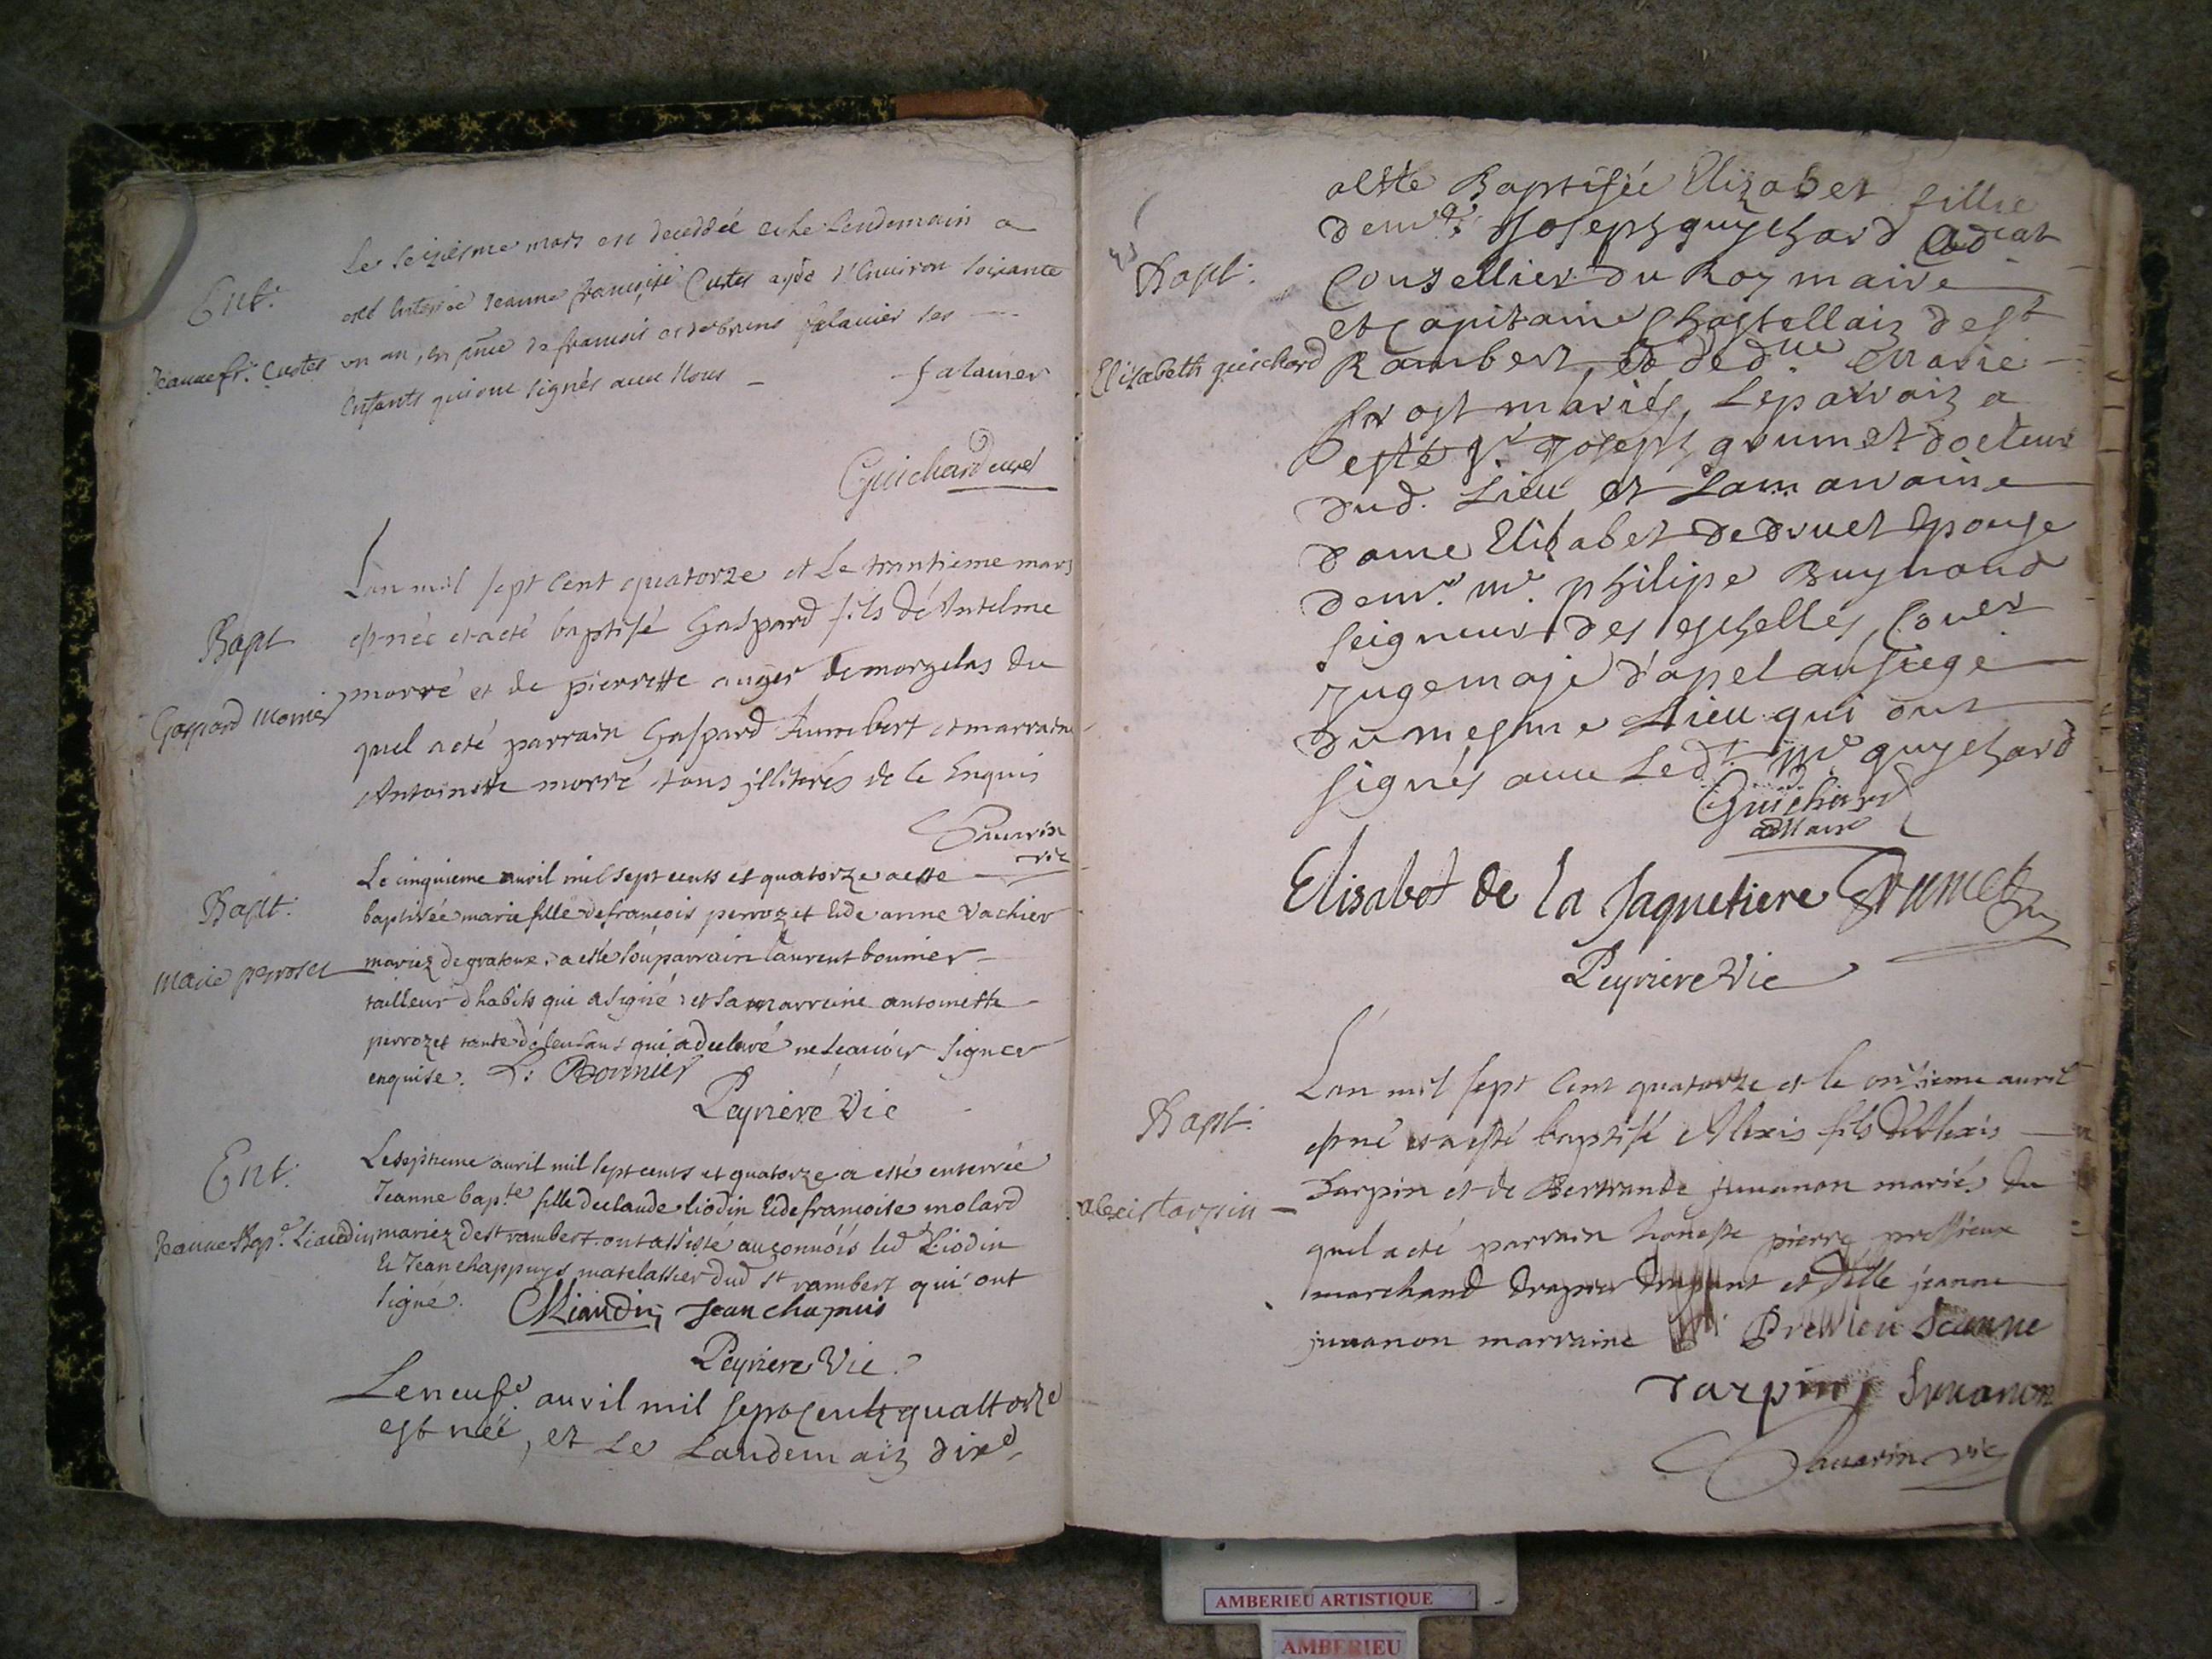 Ent.
Jeanne fr. Custes
Le seiziesme mars est decedée et le Lendemain a
esté Enterrée Jeanne françoise Custes agée d'Enuiron soixante
vn an, en pñce de françois et falauier ses
Enfants qui ont signés auec Nous
falauier
Guichard curé
Bapt
Gaspard Morrier
L'an mil sept cent quatorze et le trentieme mars
est née et a été baptisé Gaspard fils de Antelme
morré et de pierrette auger de morgelas du
quel a été parrain Gaspard humbert et marraine
Antoinette morré tous illiterés de ce Enquis
Sauarin
vic
Bapt:
Marie perroset
Le cinquieme auril mil sept cents et quatorze a este
baptisée marie fille de françois perrozet et de anne vachier
mariez de gratoux, a esté son parrain laurent bonnier
tailleur d habits qui a signé, et sa marreine antoinette
perrozet tante de lenfant qui a declaré ne sçauoir signer
enquise. L: Bonnier
Peyriere Vic
Ent:
Jeanne Bap.e Liaudin
Le septieme auril mil sept cents et quatorze a esté enterrée
Jeanne bap.te fille de claude liodin et de françoise molard
mariez de st rambert. ont assisté au conuois led Liodin
et Jean chappuys matelassier dud st rambert qui ont
signé. CLiaudin Jean chapuis
Peyriere Vic.
Le neufe. auril mil sept centz quattorze
est née, et le Landemain dixe
Bapt:
Elisabeth guichard
a esté Baptisée Elizabet fillie
de mr. Joseph guychard Aduat
Consellier du Roy maire
et capitaine Chastellain de st
Rambert, et de dlle Marie
frost mariés, Le parrain a
esté sr. Joseph grumet docteur
dud. Lieu et La marraine
dame Elizabet de druet Epouse
de mr. me. philipe Buynand
seigneur des eschelles, Coner
Juge maje d'apel au siege
du mesme Lieu qui ont
signés auec Ledt. mr guychard
Guichard
Elisabet de la Jaquetiere Grumet
Peyriere Vic
Bapt.
alexis tarpin
L'an mil sept cent quatorze et le onzieme auril
est né et a esté baptisé Alexis fils d'Alexis
Tarpin et de Bertrande Juuanon mariés du
quel a été parrain honeste pierre pressieux
marchand drapier drapant et dlle jeanne
juuanon marraine Pressieu Jeanne
Tarpin Juuanon
Sauarin vic
AMBERIEU ARTISTIQUE
AMBERIEU